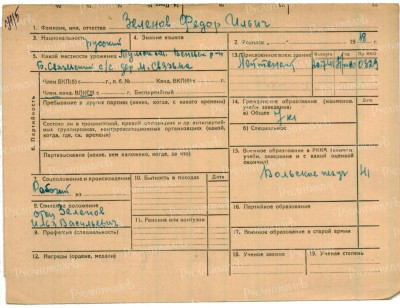 1. Фамилия, имя, отчество Зеленов Федор Ильич
3. Национальность русский
4. Знание языков
2. Родился 18
5. Какой местности уроженец
6. Партийность
Член ВКП(б) с г., п. б. № Канд. ВКП(б) с
Член, канд. ВЛКСМ с г. Беспартийный
Пребывание в других партиях (каких, когда, с какого времени)
Состоял ли в троцкистской, правой оппозиции и др. антипартийных группировках, контрреволюционных организациях (какой, когда, где, св. времени)
Партвзыскания (какие, кем наложено, когда, за что)
7. Соцположение и происхождение
Рабочий
из
8. Семейное положение
отец Зеленов
Илья Васильевич
9. Профессия (специальность)
10. Бытность в походах
11. Ранения или контузии
12. Награды (ордена, медали)
13. Присвоение воен. звания
Лейтенант
0329
14. Гражданское образование (наименов. учебн. заведения)
а) Общее 7 кл
б) Специальное
15. Военное образование в РККА (наимен. учебн. заведения и с какой оценкой окончил)
Вольское 41
16. Партийное образование
17. Военное образование в старой армии
18. Ученое звание
19. Ученая степень